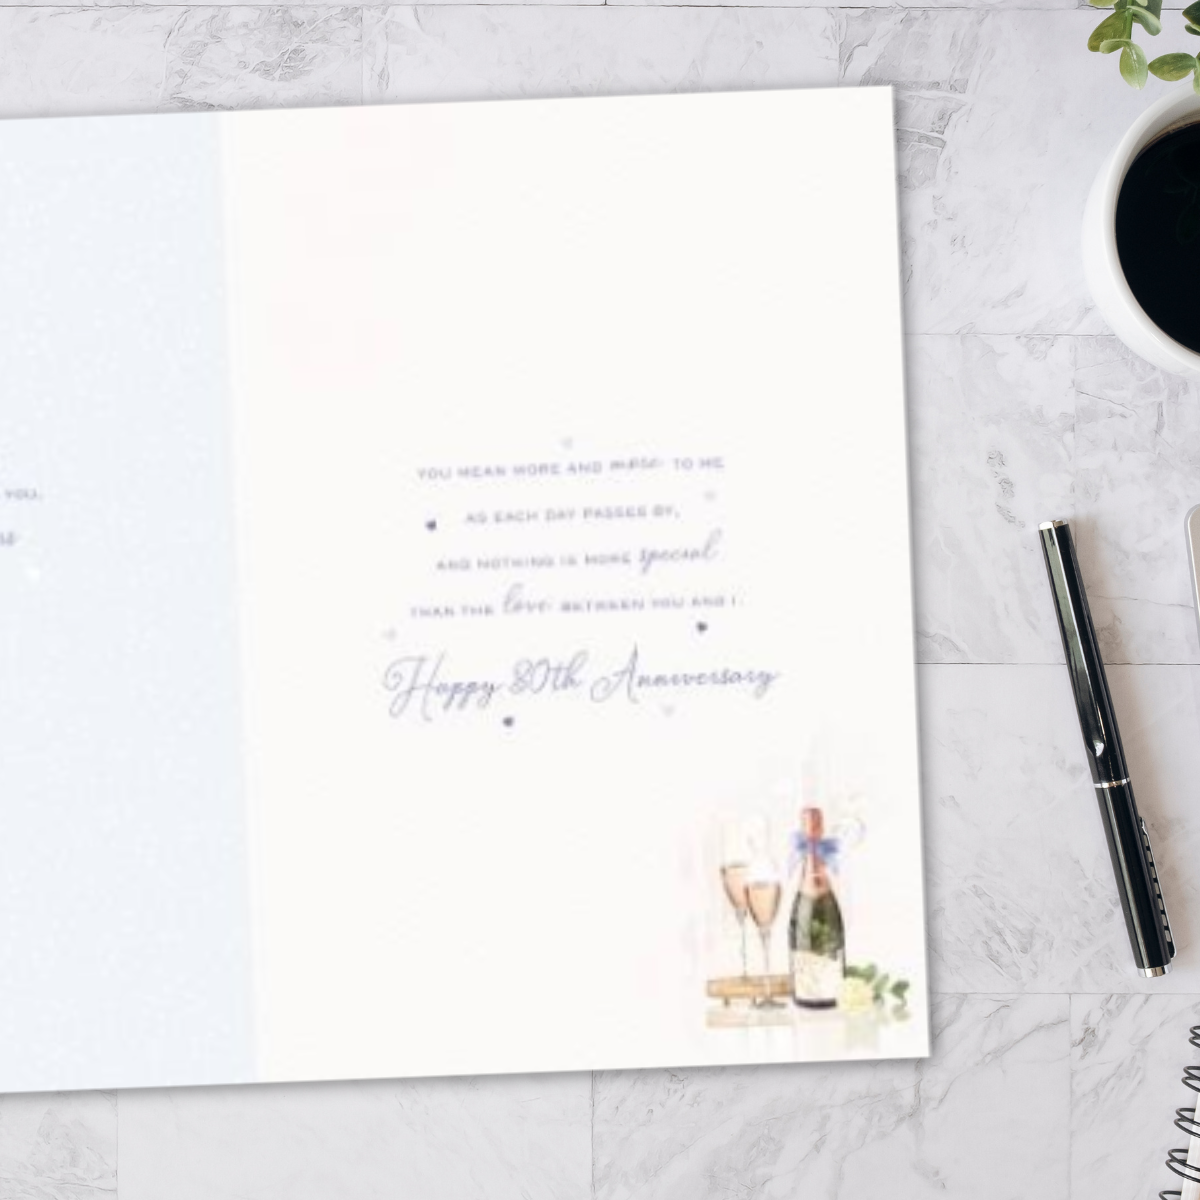 YOU,
YOU MEAN MORE AND more TO ME
AS EACH DAY PASSES BY,
AND NOTHING IS MORE special
THAN THE love BETWEEN YOU AND I.
Happy 30th Anniversary